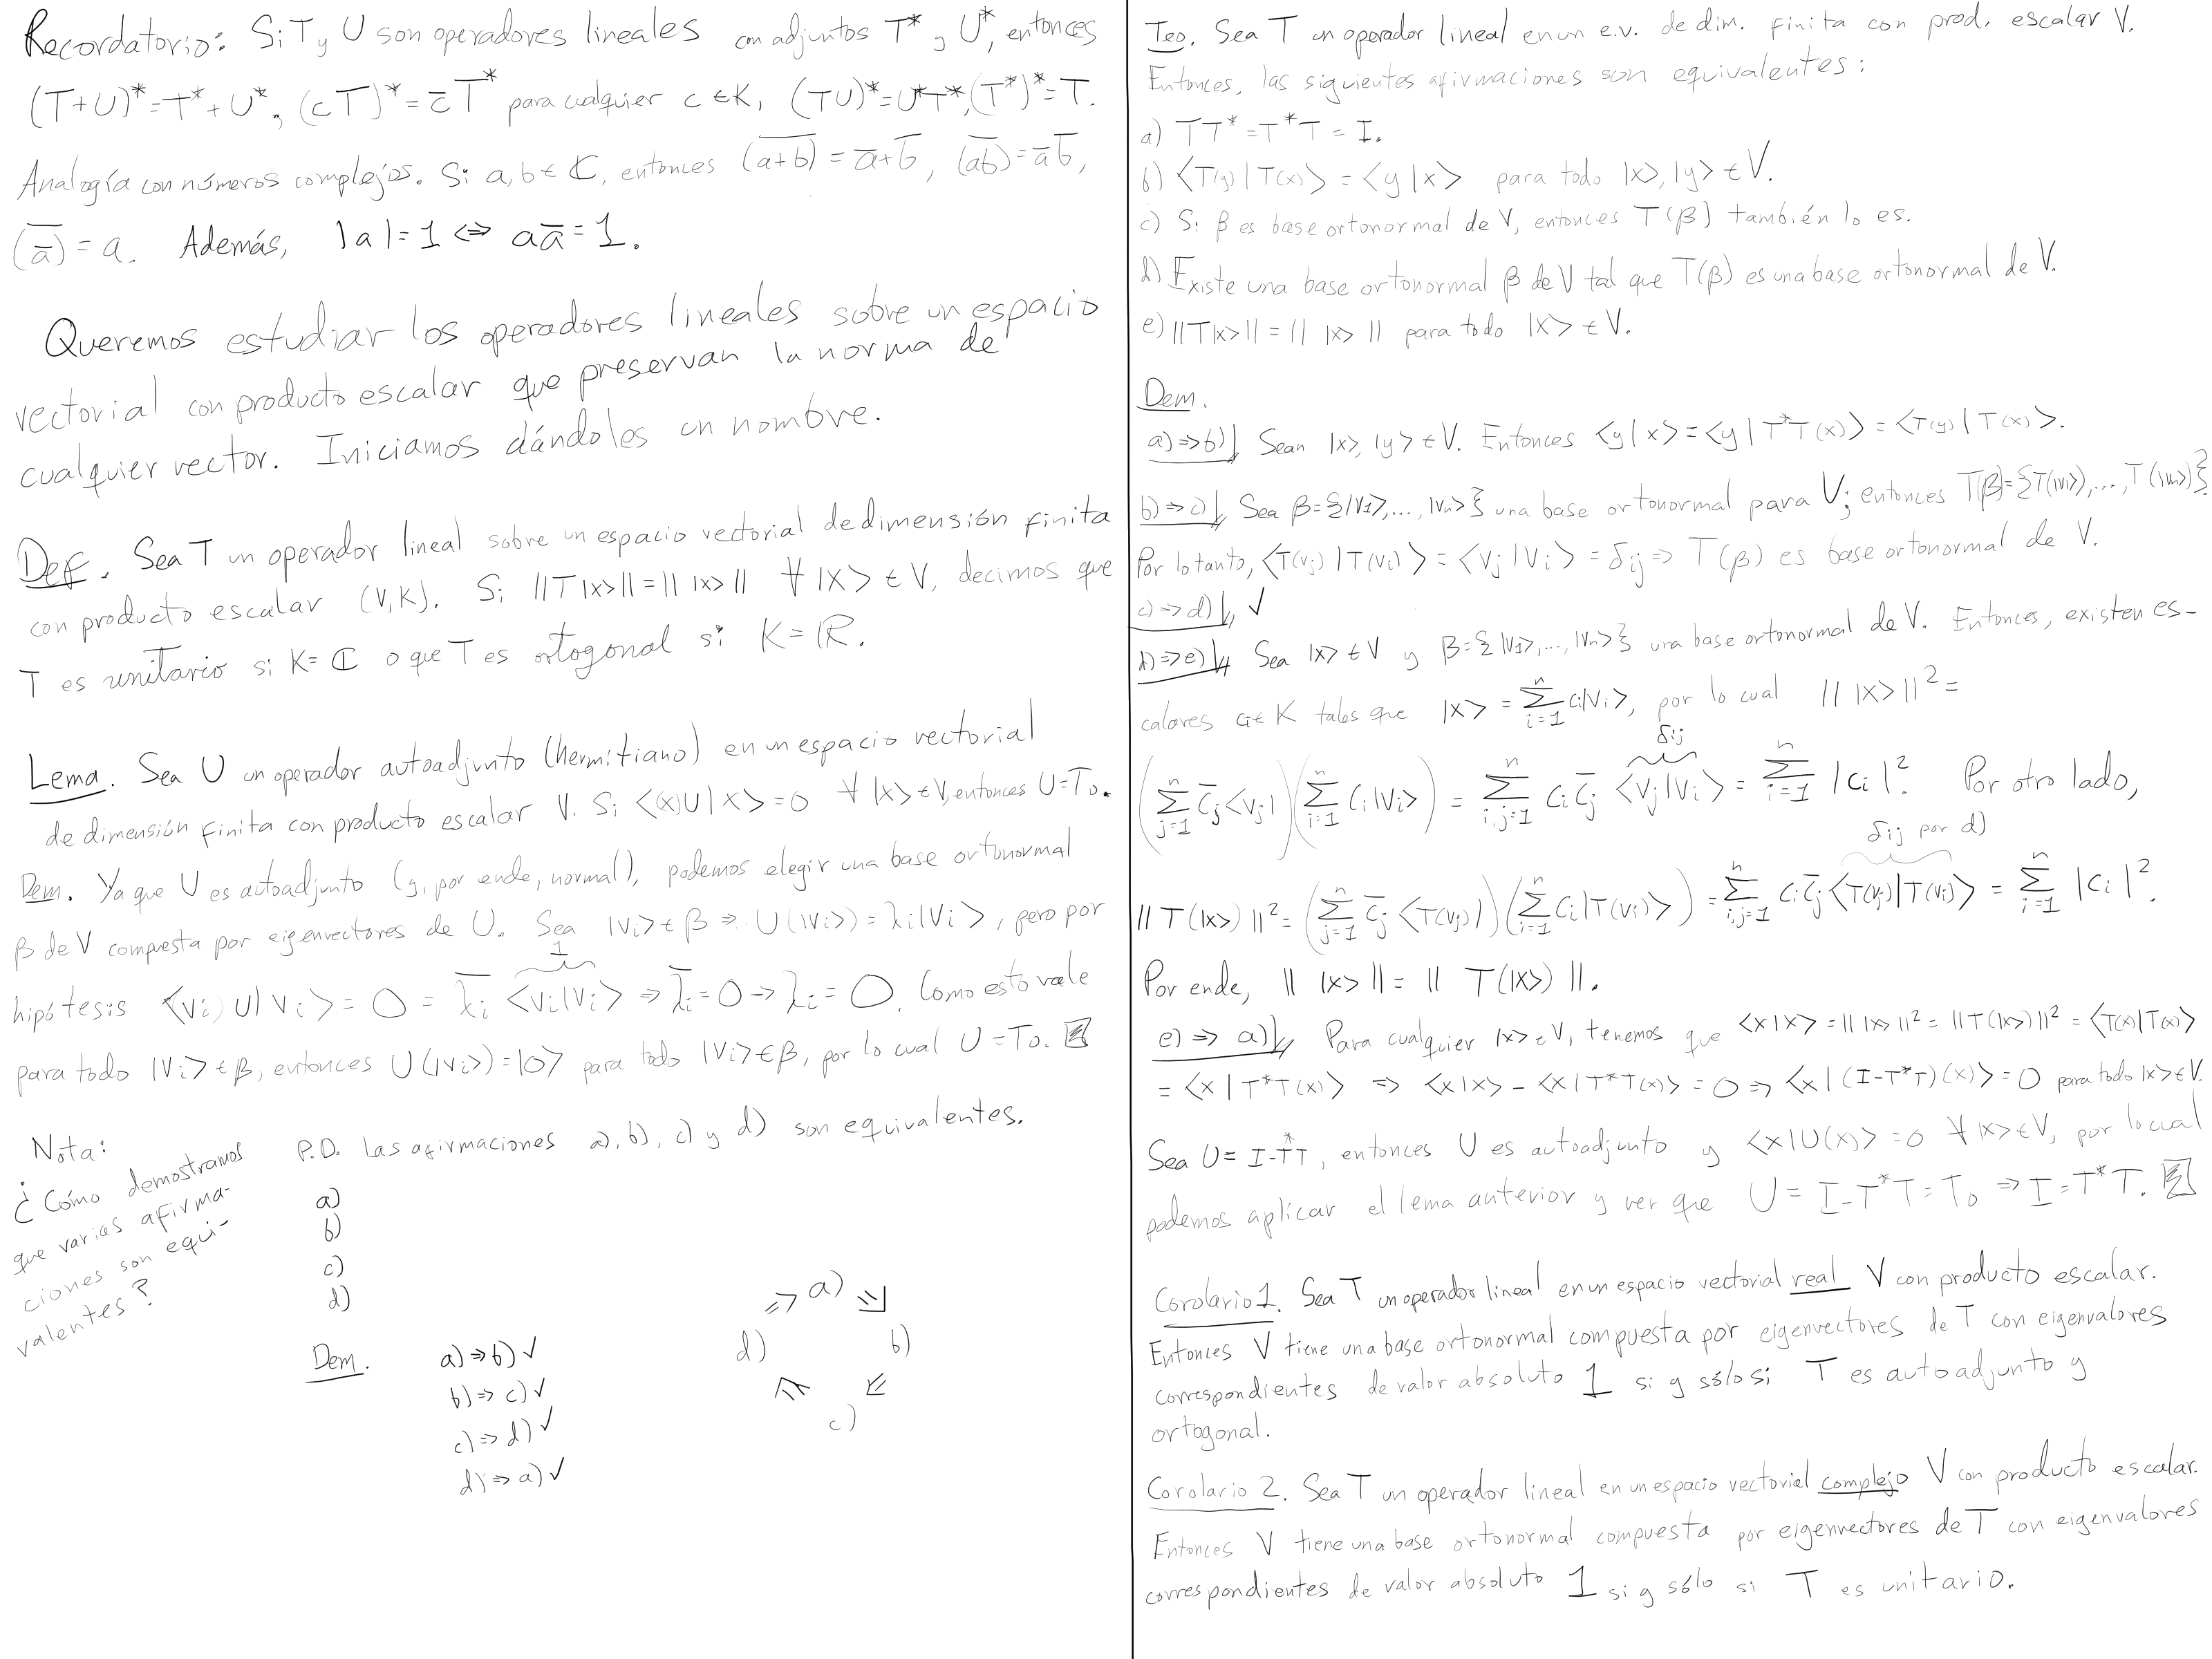 Recordatorio: Si T y U son operadores lineales con adjuntos T* y U*, entonces
(T+U)* = T* + U*, (cT)* = c̅T* para cualquier c∈K, (TU)* = U*T*, (T*)* = T.
Analogía con números complejos. Si a,b∈ℂ, entonces (a+b)̅ = a̅+b̅, (ab)̅ = a̅ b̅,
(a̅)̅ = a. Además, |a|=1 ⇔ aa̅=1.
Queremos estudiar los operadores lineales sobre un espacio
vectorial con producto escalar que preservan la norma de
cualquier vector. Iniciamos dándoles un nombre.
Def. Sea T un operador lineal sobre un espacio vectorial de dimensión finita
con producto escalar (V,K). Si ||T|x>|| = || |x> || ∀ |x> ∈ V, decimos que
T es unitario si K=ℂ o que T es ortogonal si K=ℝ.
Lema. Sea U un operador autoadjunto (hermitiano) en un espacio vectorial
de dimensión finita con producto escalar V. Si <(x)U|x>=0 ∀ |x>∈V, entonces U=T₀.
Dem. Ya que U es autoadjunto (y, por ende, normal), podemos elegir una base ortonormal
β de V compuesta por eigenvectores de U. Sea |vi>∈β ⇒ U(|vi>) = λi|vi>, pero por
1
hipótesis <(vi)U|vi> = 0 = λ̅i <vi|vi> ⇒ λ̅i=0 → λi=0. Como esto vale
para todo |vi>∈β, entonces U(|vi>)=|0> para todo |vi>∈β, por lo cual U=T₀.
Nota:
¿Cómo demostramos
que varias afirma-
ciones son equi-
valentes?
P.D. las afirmaciones a), b), c) y d) son equivalentes.
a)
b)
c)
d)
Dem. a)⇒b) ✓
b)⇒c) ✓
c)⇒d) ✓
d)⇒a) ✓
⇒ a) ⇒
d) b)
⇒ ⇐
c)
Teo. Sea T un operador lineal en un e.v. de dim. finita con prod. escalar V.
Entonces, las siguientes afirmaciones son equivalentes:
a) TT* = T*T = I.
b) <T(y)|T(x)> = <y|x> para todo |x>, |y> ∈ V.
c) Si β es base ortonormal de V, entonces T(β) también lo es.
d) Existe una base ortonormal β de V tal que T(β) es una base ortonormal de V.
e) ||T|x>|| = || |x> || para todo |x> ∈ V.
Dem.
a)⇒b) Sean |x>, |y> ∈ V. Entonces <y|x> = <y|T*T(x)> = <T(y)|T(x)>.
b)⇒c) Sea β={|v1>,...,|vn>} una base ortonormal para V; entonces T(β)={T(|v1>),...,T(|vn>)}
Por lo tanto, <T(vj)|T(vi)> = <vj|vi> = δij ⇒ T(β) es base ortonormal de V.
c)⇒d) ✓
d)⇒e) Sea |x>∈V y β={|v1>,...,|vn>} una base ortonormal de V. Entonces, existen es-
calares ci∈K tales que |x> = Σ_{i=1}^{n} ci|vi>, por lo cual || |x> ||² =
δij
(Σ_{j=1}^{n} c̅j<vj|)(Σ_{i=1}^{n} ci|vi>) = Σ_{i,j=1}^{n} ci c̅j <vj|vi> = Σ_{i=1}^{n} |ci|². Por otro lado,
δij por d)
||T(|x>)||² = (Σ_{j=1}^{n} c̅j <T(vj)|)(Σ_{i=1}^{n} ci|T(vi)>) = Σ_{i,j=1}^{n} ci c̅j <T(vj)|T(vi)> = Σ_{i=1}^{n} |ci|².
Por ende, || |x> || = || T(|x>) ||.
e)⇒a) Para cualquier |x>∈V, tenemos que <x|x> = || |x> ||² = ||T(|x>)||² = <T(x)|T(x)>
= <x|T*T(x)> ⇒ <x|x> - <x|T*T(x)> = 0 ⇒ <x|(I-T*T)(x)> = 0 para todo |x>∈V.
Sea U = I-T*T, entonces U es autoadjunto y <x|U(x)> = 0 ∀ |x>∈V, por lo cual
podemos aplicar el lema anterior y ver que U = I-T*T = T₀ ⇒ I = T*T.
Corolario 1. Sea T un operador lineal en un espacio vectorial real V con producto escalar.
Entonces V tiene una base ortonormal compuesta por eigenvectores de T con eigenvalores
correspondientes de valor absoluto 1 si y sólo si T es autoadjunto y
ortogonal.
Corolario 2. Sea T un operador lineal en un espacio vectorial complejo V con producto escalar.
Entonces V tiene una base ortonormal compuesta por eigenvectores de T con eigenvalores
correspondientes de valor absoluto 1 si y sólo si T es unitario.